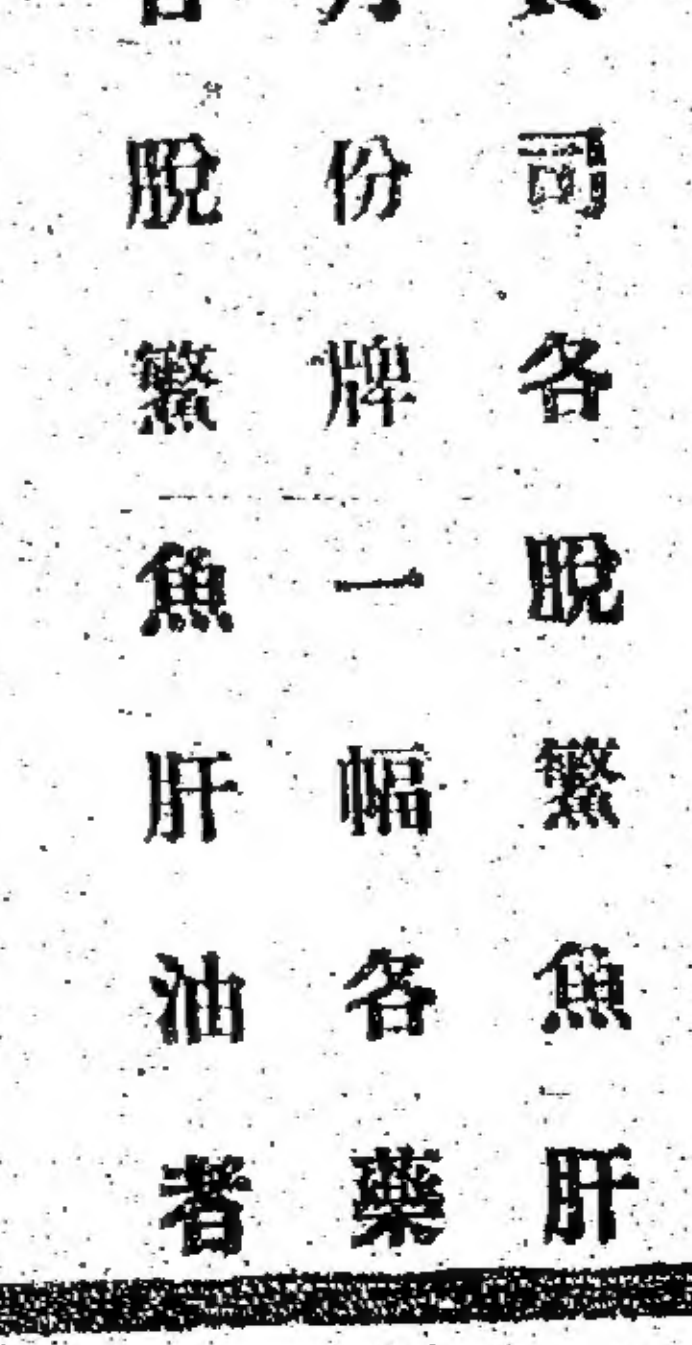 司各脫鰵魚肝
份牌一幅各藥
脫鰵魚肝油者